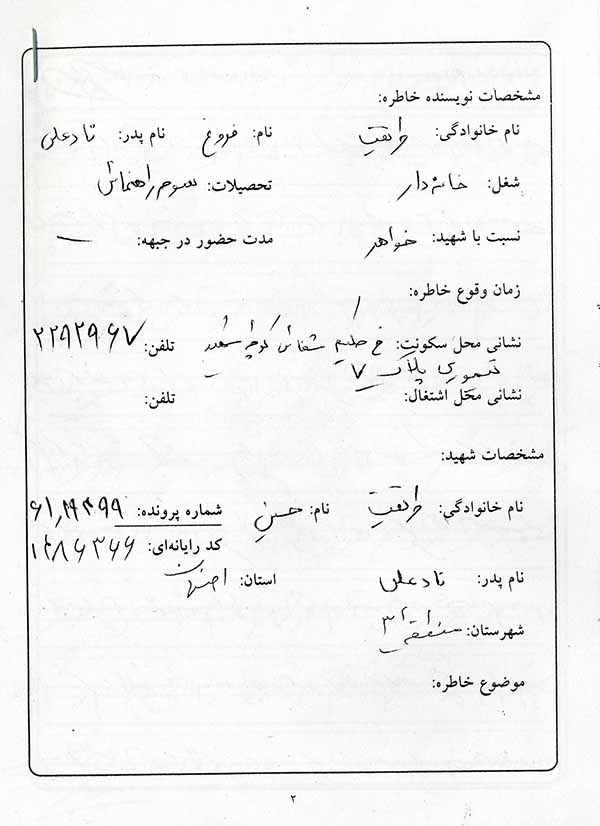 مشخصات نویسنده خاطره:
نام خانوادگی: نام: فروغ نام پدر: نادعلی
شغل: خانه دار تحصیلات: سوم راهنمائی
نسبت با شهید: خواهر مدت حضور در جبهه: —
زمان وقوع خاطره:
نشانی محل سکونت: خ حکیم شفائی کوچه شهید تلفن: ۲۲۹۲۹۶۷
تیموری پلاک ۷
نشانی محل اشتغال: تلفن:
مشخصات شهید:
نام خانوادگی: نام: حسین شماره پرونده:
کد رایانه‌ای:
نام پدر: نادعلی استان: اصفهان
شهرستان: منطقه ۳
موضوع خاطره:
۲